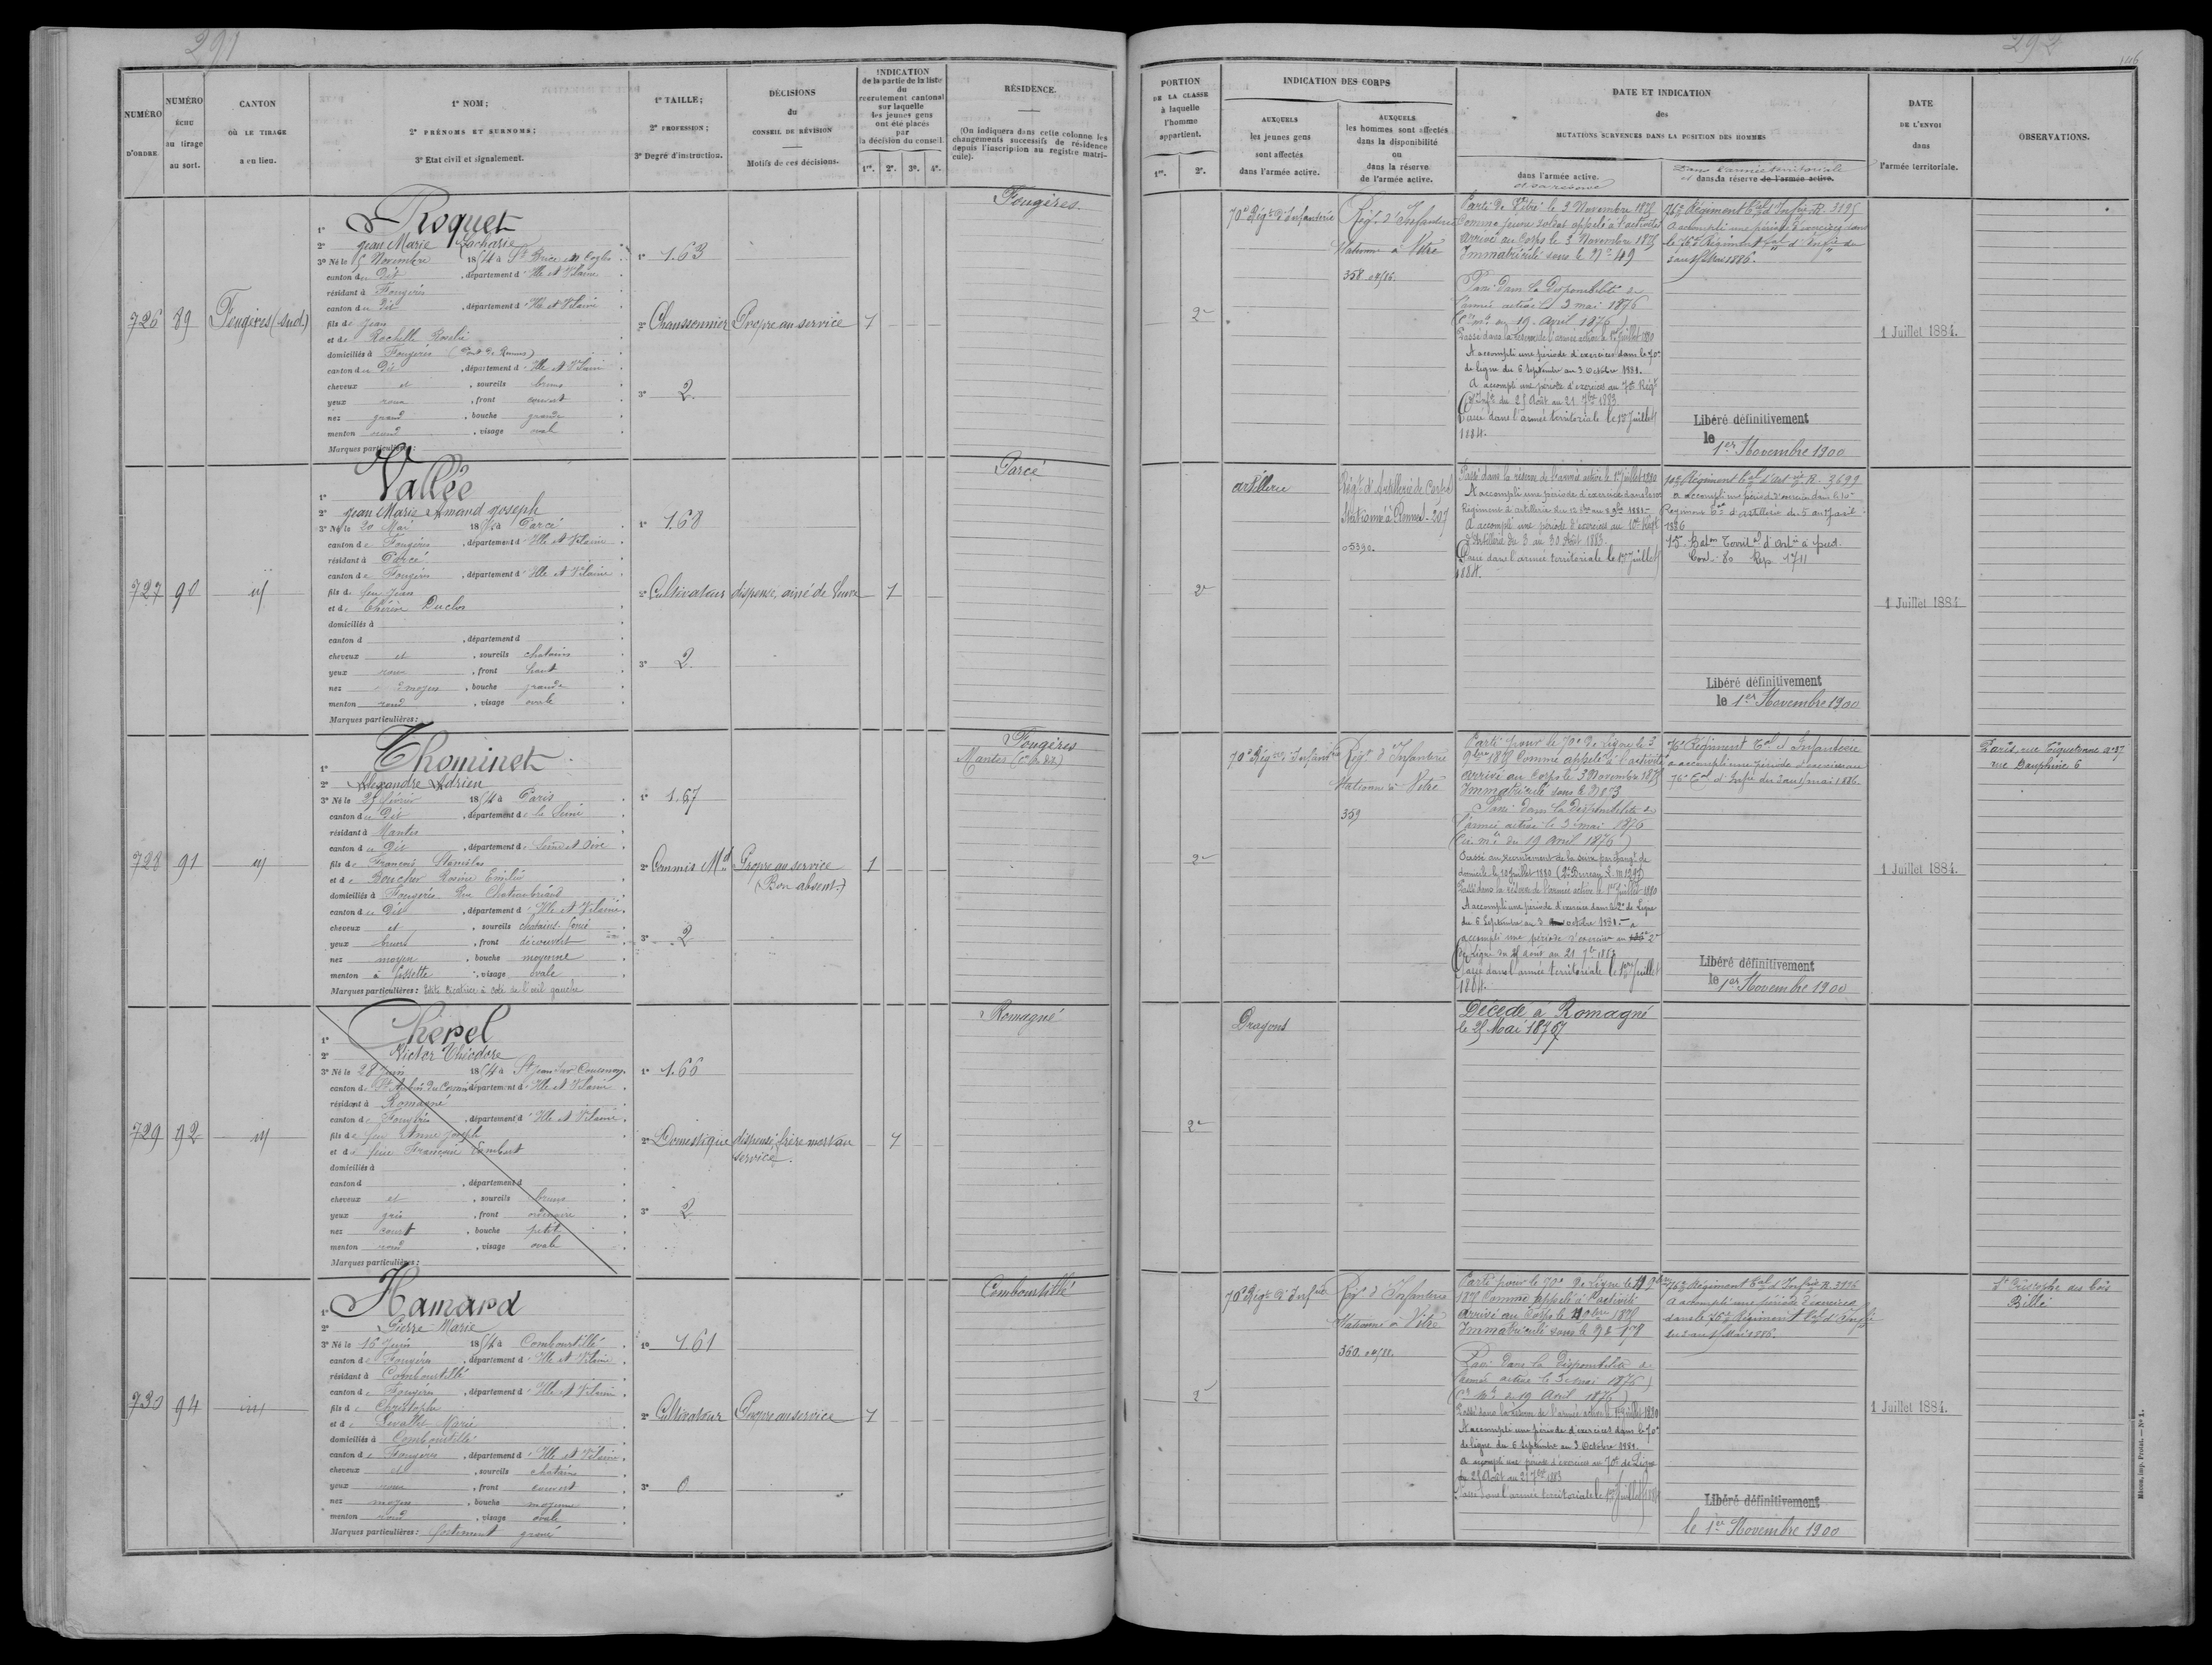 291
NUMÉRO D'ORDRE
NUMÉRO ÉCHU au tirage au sort.
CANTON OÙ LE TIRAGE a eu lieu.
1° NOM;
2° PRÉNOMS ET SURNOMS;
3° État civil et signalement.
1° TAILLE;
2° PROFESSION;
3° Degré d'instruction.
DÉCISIONS du CONSEIL DE RÉVISION
Motifs de ces décisions.
INDICATION
de la partie de la liste
du
recrutement cantonal
sur laquelle
les jeunes gens
ont été placés
par
la décision du conseil.
1re. 2e. 3e. 4e.
RÉSIDENCE.
(On indiquera dans cette colonne les
changements successifs de résidence
depuis l'inscription au registre matri-
cule).
726 89 Fougères (Sud)
1° Roquet
2° Jean Marie Zacharie
3° Né le 5 Novembre 1854 à St Brice en Cogles
canton du Dit, département d'Ille et Vilaine
résidant à Fougères
canton du Dit, département d'Ille et Vilaine
fils de Jean
et de Rochelle Rosalie
domiciliés à Fougères
canton du Dit, département d'Ille et Vilaine
cheveux et, sourcils bruns
yeux roux, front couvert
nez grand, bouche grande
menton rond, visage oval
Marques particulières:
1° 1.63
2° Chaussonnier
3° 2
Propre au service
1
Fougères
727 90 id
1° Vallée
2° Jean Marie Amand Joseph
3° Né le 20 Mai 1854 à Parcé
canton de Fougères, département d'Ille et Vilaine
résidant à Parcé
canton de Fougères, département d'Ille et Vilaine
fils de feu Jean
et de Duclos
domiciliés à
canton d, département d
cheveux et, sourcils chatains
yeux roux, front haut
nez moyen, bouche grande
menton rond, visage ovale
Marques particulières:
1° 1.68
2° Cultivateur
3° 2
dispensé, ainé de veuve
1
Parcé
728 91 id
1° Thominet
2° Alexandre Adrien
3° Né le 25 février 1854 à Paris
canton du Dit, département de la Seine
résidant à Mantes
canton du Dit, département de Seine et Oise
fils de François Stanislas
et de Boucher Rosine Emilie
domiciliés à Fougères Rue Chateaubriand
canton du Dit, département d'Ille et Vilaine
cheveux et, sourcils chatains foncé
yeux bruns, front découvert
nez moyen, bouche moyenne
menton à fossette, visage ovale
Marques particulières: Petite cicatrice à coté de l'œil gauche
1° 1.67
2° Commis Md
3° 2
Propre au service
(Bon absent)
1
Fougères
Mantes
729 92 id
1° Chérel
2° Victor Théodore
3° Né le 28 Juin 1854 à St Jean sur Couesnon
canton de St Aubin du Cormier, département d'Ille et Vilaine
résidant à Romagné
canton de Fougères, département d'Ille et Vilaine
fils de feu Anne Joseph
et de feue Françoise Lambert
domiciliés à
canton d, département d
cheveux et, sourcils bruns
yeux gris, front ordinaire
nez court, bouche petite
menton rond, visage ovale
Marques particulières:
1° 1.66
2° Domestique
3° 2
dispensé, frère mort au
service.
1
Romagné
730 94 id
1° Hamard
2° Pierre Marie
3° Né le 16 Juin 1854 à Combourtillé
canton de Fougères, département d'Ille et Vilaine
résidant à Combourtillé
canton de Fougères, département d'Ille et Vilaine
fils de Christophe
et de Levallet Marie
domiciliés à Combourtillé
canton de Fougères, département d'Ille et Vilaine
cheveux et, sourcils chatains
yeux roux, front couvert
nez moyen, bouche moyenne
menton rond, visage ovale
Marques particulières: fortement gravé
1° 1.61
2° Cultivateur
3° 0
Propre au service
1
Combourtillé
292
146
PORTION
DE LA CLASSE
à laquelle
l'homme
appartient.
1re. 2e.
INDICATION DES CORPS
AUXQUELS
les jeunes gens
sont affectés
dans l'armée active.
AUXQUELS
les hommes sont affectés
dans la disponibilité
ou
dans la réserve
de l'armée active.
DATE ET INDICATION
des
MUTATIONS SURVENUES DANS LA POSITION DES HOMMES
dans l'armée active.
et sa réserve
Dans l'armée territoriale
et dans la réserve de l'armée active.
DATE
DE L'ENVOI
dans
l'armée territoriale.
OBSERVATIONS.
2e
70e Régt d'Infanterie
Régt d'Infanterie
Stationné à Vitré
358
Parti de Vitré le 3 Novembre 1875
Comme jeune soldat appelé à l'activité
Arrivé au Corps le 3 Novembre 1875
Immatriculé sous le
Passé dans la disponibilité de
l'armée active le 3 mai 1876
19 Avril 1876)
Passé dans la réserve de l'armée active le 1er Juillet 1880
A accompli une période d'exercices dans le 70e
de ligne du 6 Septembre au 3 Octobre 1881.
A accompli une période d'exercices au 70e Régt
d'Infie du 25 Août au 21 7bre 1883
Passé dans l'armée territoriale le 1er Juillet
1884.
76e Régiment Tal d'Infie R. 3195
A accompli une période d'exercices dans
le 76e Régiment Tal d'Infie du
3 au 15 Mai 1886.
Libéré définitivement
le 1er Novembre 1900
1 Juillet 1884.
2e
Artillerie
Régt d'Artillerie de Corps
Stationné à Rennes. 207
Passé dans la réserve de l'armée active le 1er Juillet 1880
A accompli une période d'exercices dans le 10e
Régiment d'artillerie
A accompli une période d'exercices au 10e Régt
d'Artillerie du 3 au 30 Août 1883.
Passé dans l'armée territoriale le 1er Juillet
1884.
10e Régiment Tal d'Art R. 3699
a accompli une période d'exercices dans le 10e
Régiment Tal d'Artillerie du 5 au 17 avril
1886
15e Batон Territal d'Artie à pied.
Rep. 1711
Libéré définitivement
le 1er Novembre 1900
1 Juillet 1884
2e
70e Régt d'Infanterie
Régt d'Infanterie
Stationné à Vitré
359
Parti pour le 70e de Ligne le 3
9bre 1875 Comme appelé à l'activité
Arrivé au Corps le 3 Novembre 1875
Immatriculé sous le
Passé dans la disponibilité de
l'armée active le 3 mai 1876
(Cir. mlle du 19 Avril 1876)
Passé au recrutement de la Seine par changt de
domicile le 12 Juillet 1880
Passé dans la réserve de l'armée active le 1er Juillet 1880
A accompli une période d'exercices dans le 2e de Ligne
du 6 Septembre au 3 octobre 1881. a
accompli une période d'exercices au 2e
de Ligne du 25 Août au 21 7bre 1883
Passé dans l'armée territoriale le 1er Juillet
1884.
76e Régiment Tal d'Infanterie
a accompli une période d'exercices au
76e Tal d'Infie du 3 au 15 mai 1886.
Libéré définitivement
le 1er Novembre 1900
1 Juillet 1884.
Paris, rue Tiquetonne
rue Dauphine 6
2e
Dragons
Décédé à Romagné
le 25 Mai 1876
2e
70e Régt d'Infie
Régt d'Infanterie
Stationné à Vitré
360
Parti pour le 70e de Ligne le
1875 Comme appelé à l'activité
Arrivé au Corps le
Immatriculé sous le
Passé dans la disponibilité de
l'armée active le 3 mai 1876
du 19 Avril 1876)
Passé dans la réserve de l'armée active le 1er Juillet 1880
A accompli une période d'exercices dans le 70e
de ligne du 6 Septembre au 3 Octobre 1881.
a accompli une période d'exercices au 70e de Ligne
du 25 Août au 21 7bre 1883
Passé dans l'armée territoriale le 1er Juillet 1884
76e Régiment Tal d'Infie R. 3196
A accompli une période d'exercices
dans le 76e Régiment Tal d'Infie
du 3 au 15 Mai 1886.
Libéré définitivement
le 1er Novembre 1900
1 Juillet 1884.
St Christophe des bois
Billé
Mâcon, imp. Protat. — N° 1.